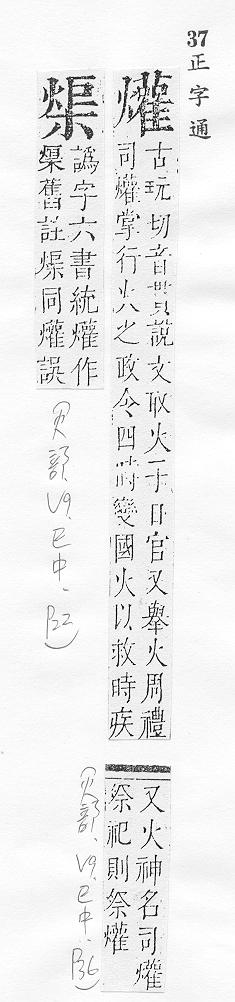 37正字通
爟
古玩切音貫說文取火于日官又舉火周禮
司爟掌行火之政令四時變國火以救時疾
又火神名司爟
祭祀則祭爟
㷅
譌字六書統爟作
㷅舊註㷅同爟誤
火部,V9,巳中,B36